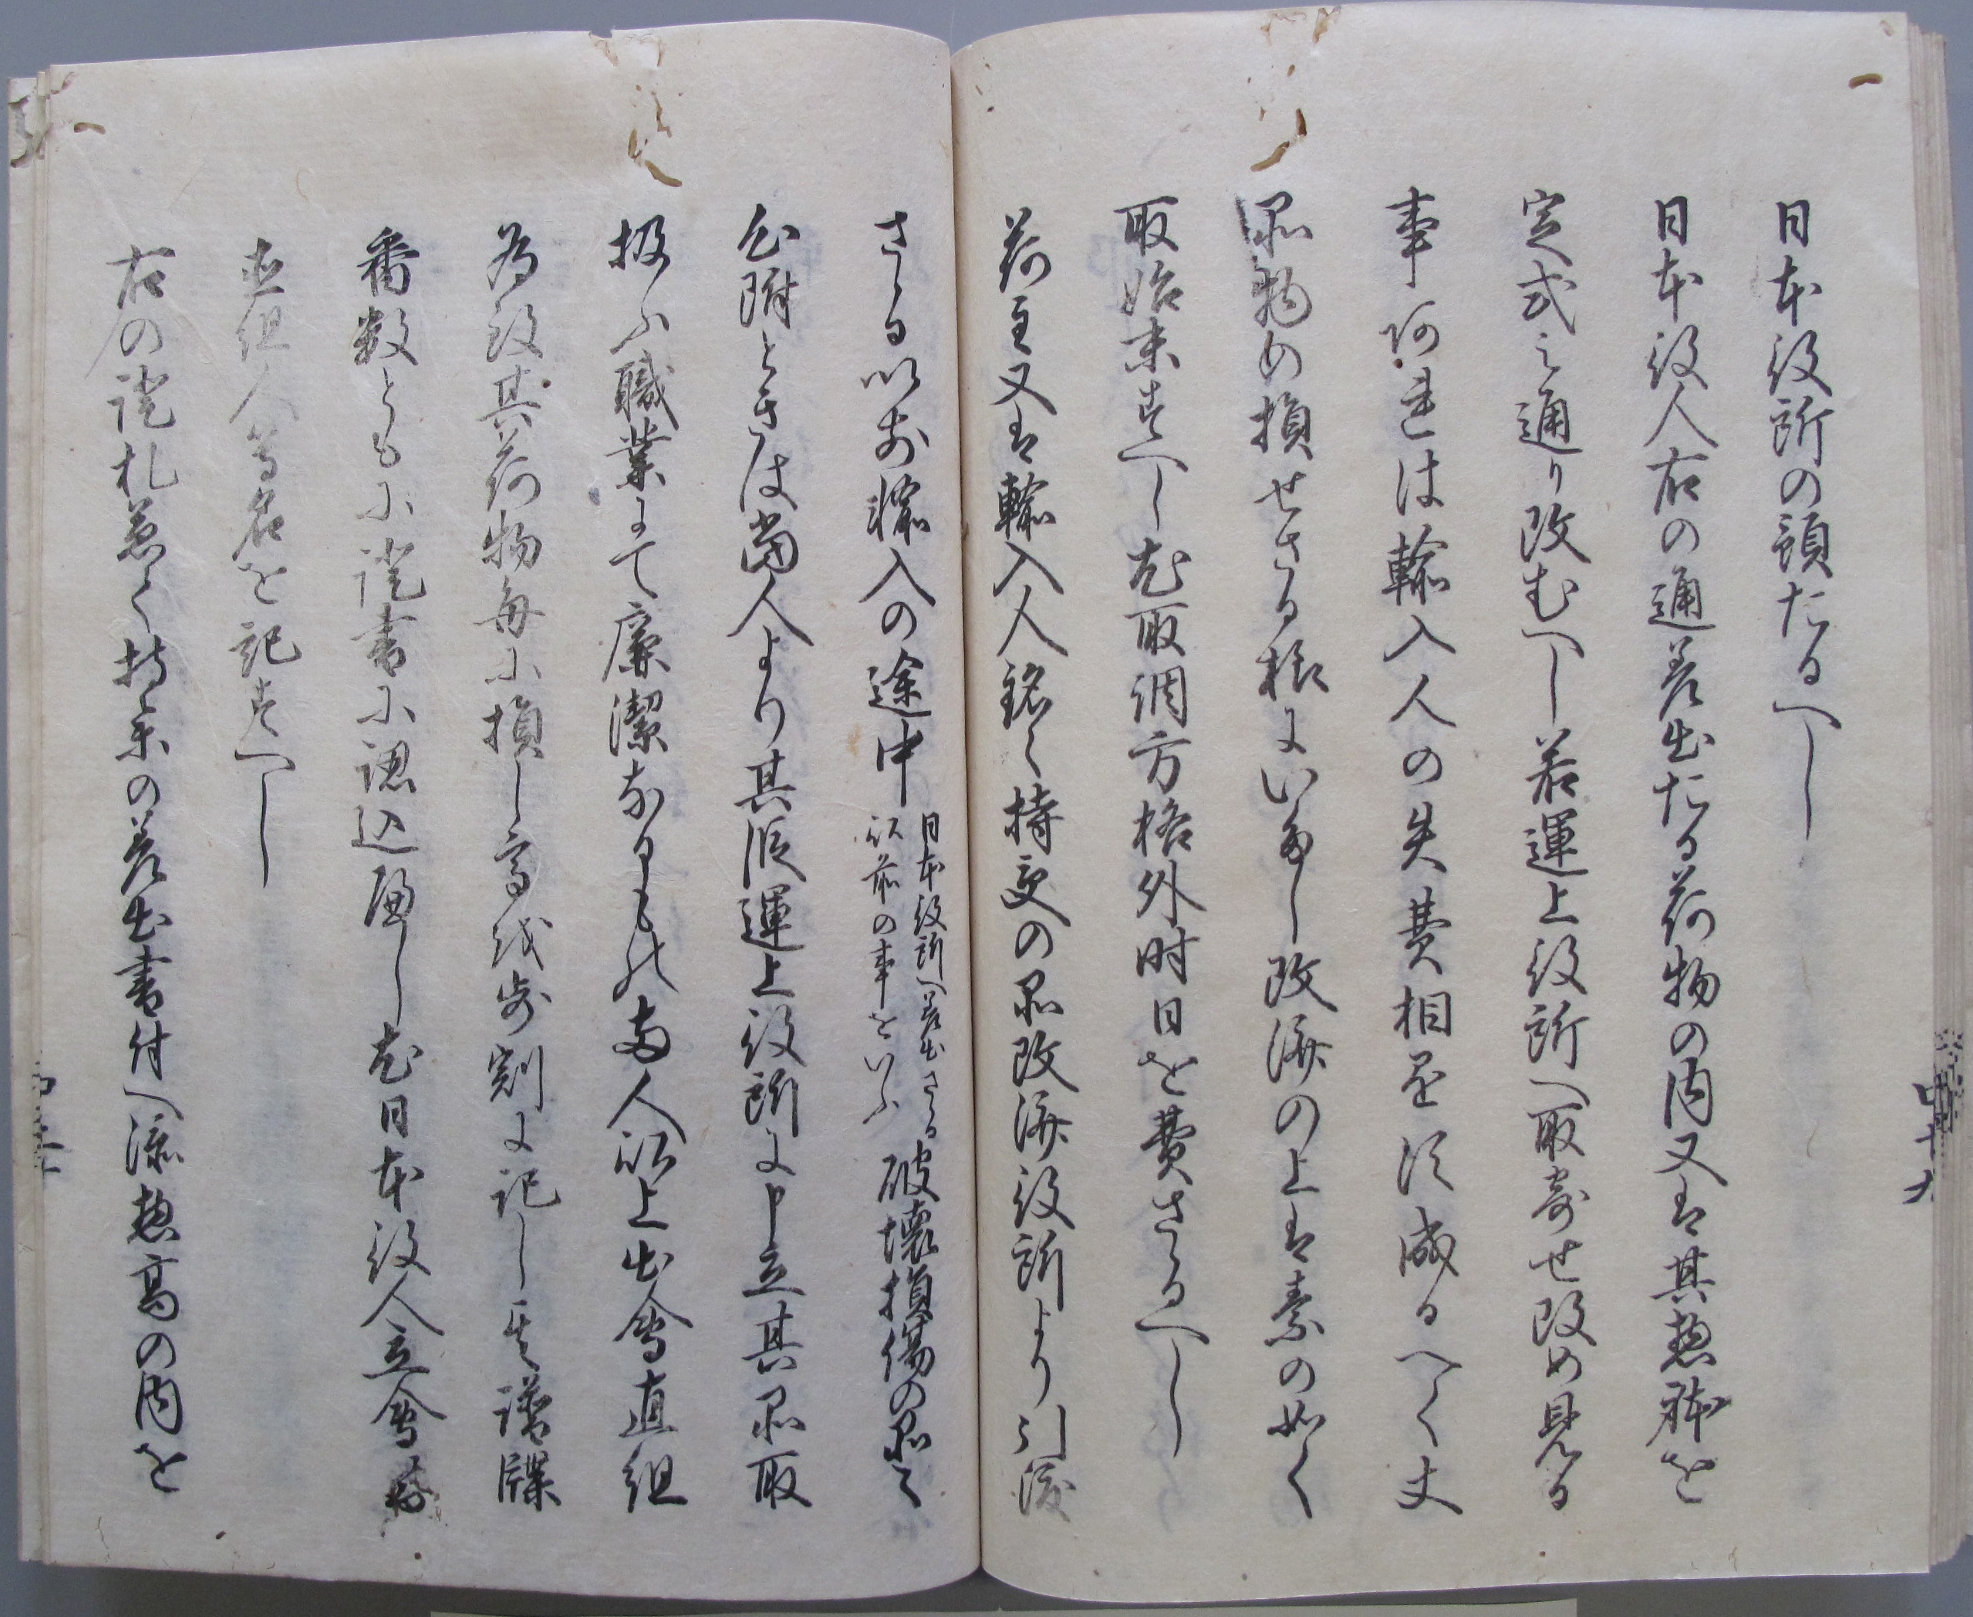 日本役所の預たるへし
日本役人右の通差出たる荷物の内又は其惣躰を
定式之通り改むへし若運上役所へ取寄せ改め見る
事阿連は輸入人の失費相是須成るへく丈
品物の損せさる様にいたし改済の上は素の如く
取始末すへし尤取調方格外時日を費さゝるへし
荷主又は輸入人銘々持受の品改済役所より引渡
さゝる以前輸入の途中
日本役所へ差出さゝる
以前の事をいふ
破壊損傷の品々
心附ときは當人より其段運上役所に申立其品取
扱ふ職業にて廉潔なるもの両人以上出會直組
為致其荷物毎に損し高歩割に記し其譜牒
番数ともに證書に認込へし尤日本役人立會
直組人等名を記すへし
右の證札急く持参の差出書付へ添惣高の内を
中十九